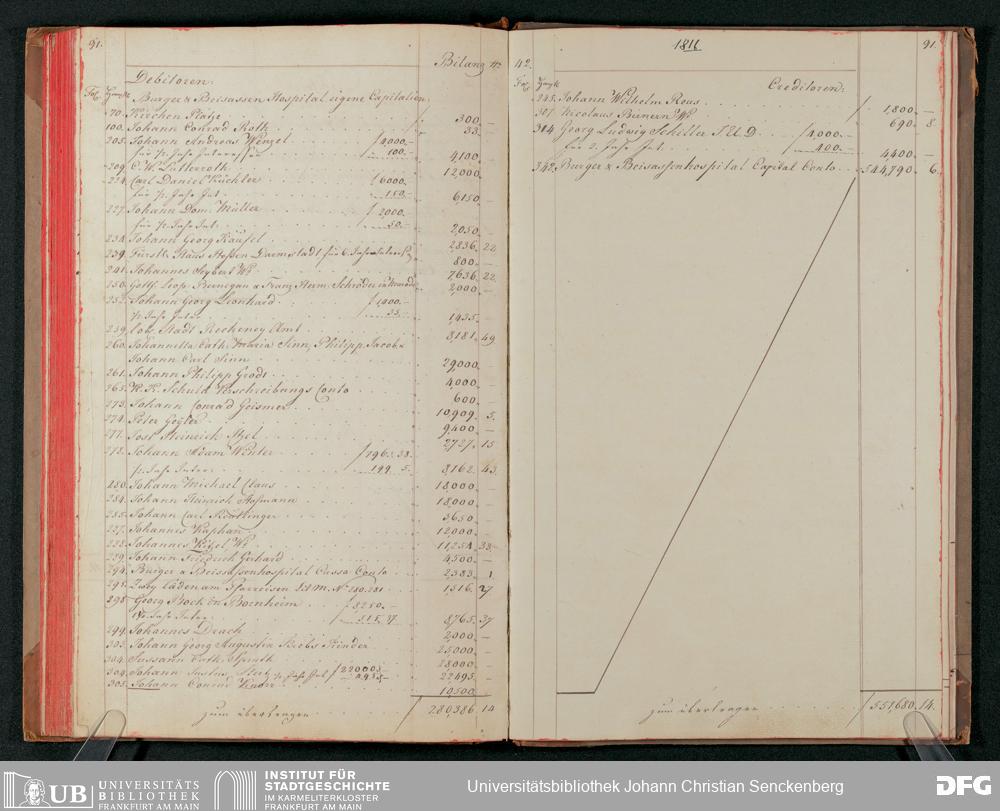 91.
Bilanz No
Debitoren:
Burger & Beisassen Hospital eigene Capitalien:
70. Kirchen Platze 300. —
100. Johann Conrad Roth 33. —
205. Johann Andreas Wenzel f 4000. —
für 1/2 Jahr Interessen 100. — 4100. —
209. C. W. Lutteroth 12,000. —
224. Carl Daniel Küchler f 6000. —
für 1/2 Jahr Int. 150. — 6,150. —
227. Johann Dom. Müller f 2,000. —
für 1/2 Jahr Int. 50. — 2,050. —
234. Johann Georg Käufel 2,836. 22
239. Fürstl. Haus Hessen Darmstadt für 6. Jahr 800. —
241. Johannes Seybert 7,656. 22.
250. Gottf. Leop. & Franz Herm. Schröder 2,000. —
252. Johann Georg Leonhard f 1,400. —
1/2 Jahr Inter. 35. — 1,435. —
259. löbl. Stadt Recheney Amt 8,181. 49
260. Johannetta Cath. Maria Sinn, Philipp Jacob &
Johann Carl Sinn 29,000. —
261. Johann Philipp Grodt 4,000. —
265. K. K. Schuld Verschreibungs Conto 600. —
273. Johann Conrad Geismer 10,909. 5.
274. Peter Gogler 9,400. —
277. Jost Heinrich 2,727. 15
278. Johann Adam Winter f 7963. 38.
1/2 Jahr Inter. 199. 5. 8,162. 43.
280. Johann Michael Claus 18,000. —
284. Johann Heinrich Hofmann 18,000. —
285. Johann Carl 3,650. —
227. Johannes Kaphan 12,000. —
228. Johannes 11,254. 38.
229. Johann Friedrich Gerhard 4,500. —
294. Burger & Beisassenhospital Cassa Conto 2,383. 1
295. Zwey Läden am Pfarreisen Lit. M. No 280. 281 1,516. 27
298. Georg Bock in Bornheim f 8250. —
Jahr Inter. 515. 37. 8,765. 37
299. Johannes Drach 2,000. —
303. Johann Georg Augustin Kinder 25,000. —
304. Sussann Cath. 28,000. —
304. Johann Justus 1/2 Jahr Int. f 22000. — 495. — 22,495. —
305. Johann Conrad Knorr 10,500. —
zum übertragen f 280,386. 14
1811
91.
12.
Creditoren:
285. Johann Wilhelm Rous f 1,800. —
301. Nicolaus 690. 8
304. Georg Ludwig Schiller I. U. D. f 4,000. —
für 2. Jahr Int. 400. — 4,400. —
342. Burger & Beisassenhospital Capital Conto 544,790. 6.
zum übertragen f 551,680. 14.
UB UNIVERSITÄTS
BIBLIOTHEK
FRANKFURT AM MAIN
INSTITUT FÜR
STADTGESCHICHTE
IM KARMELITERKLOSTER
FRANKFURT AM MAIN
Universitätsbibliothek Johann Christian Senckenberg
DFG